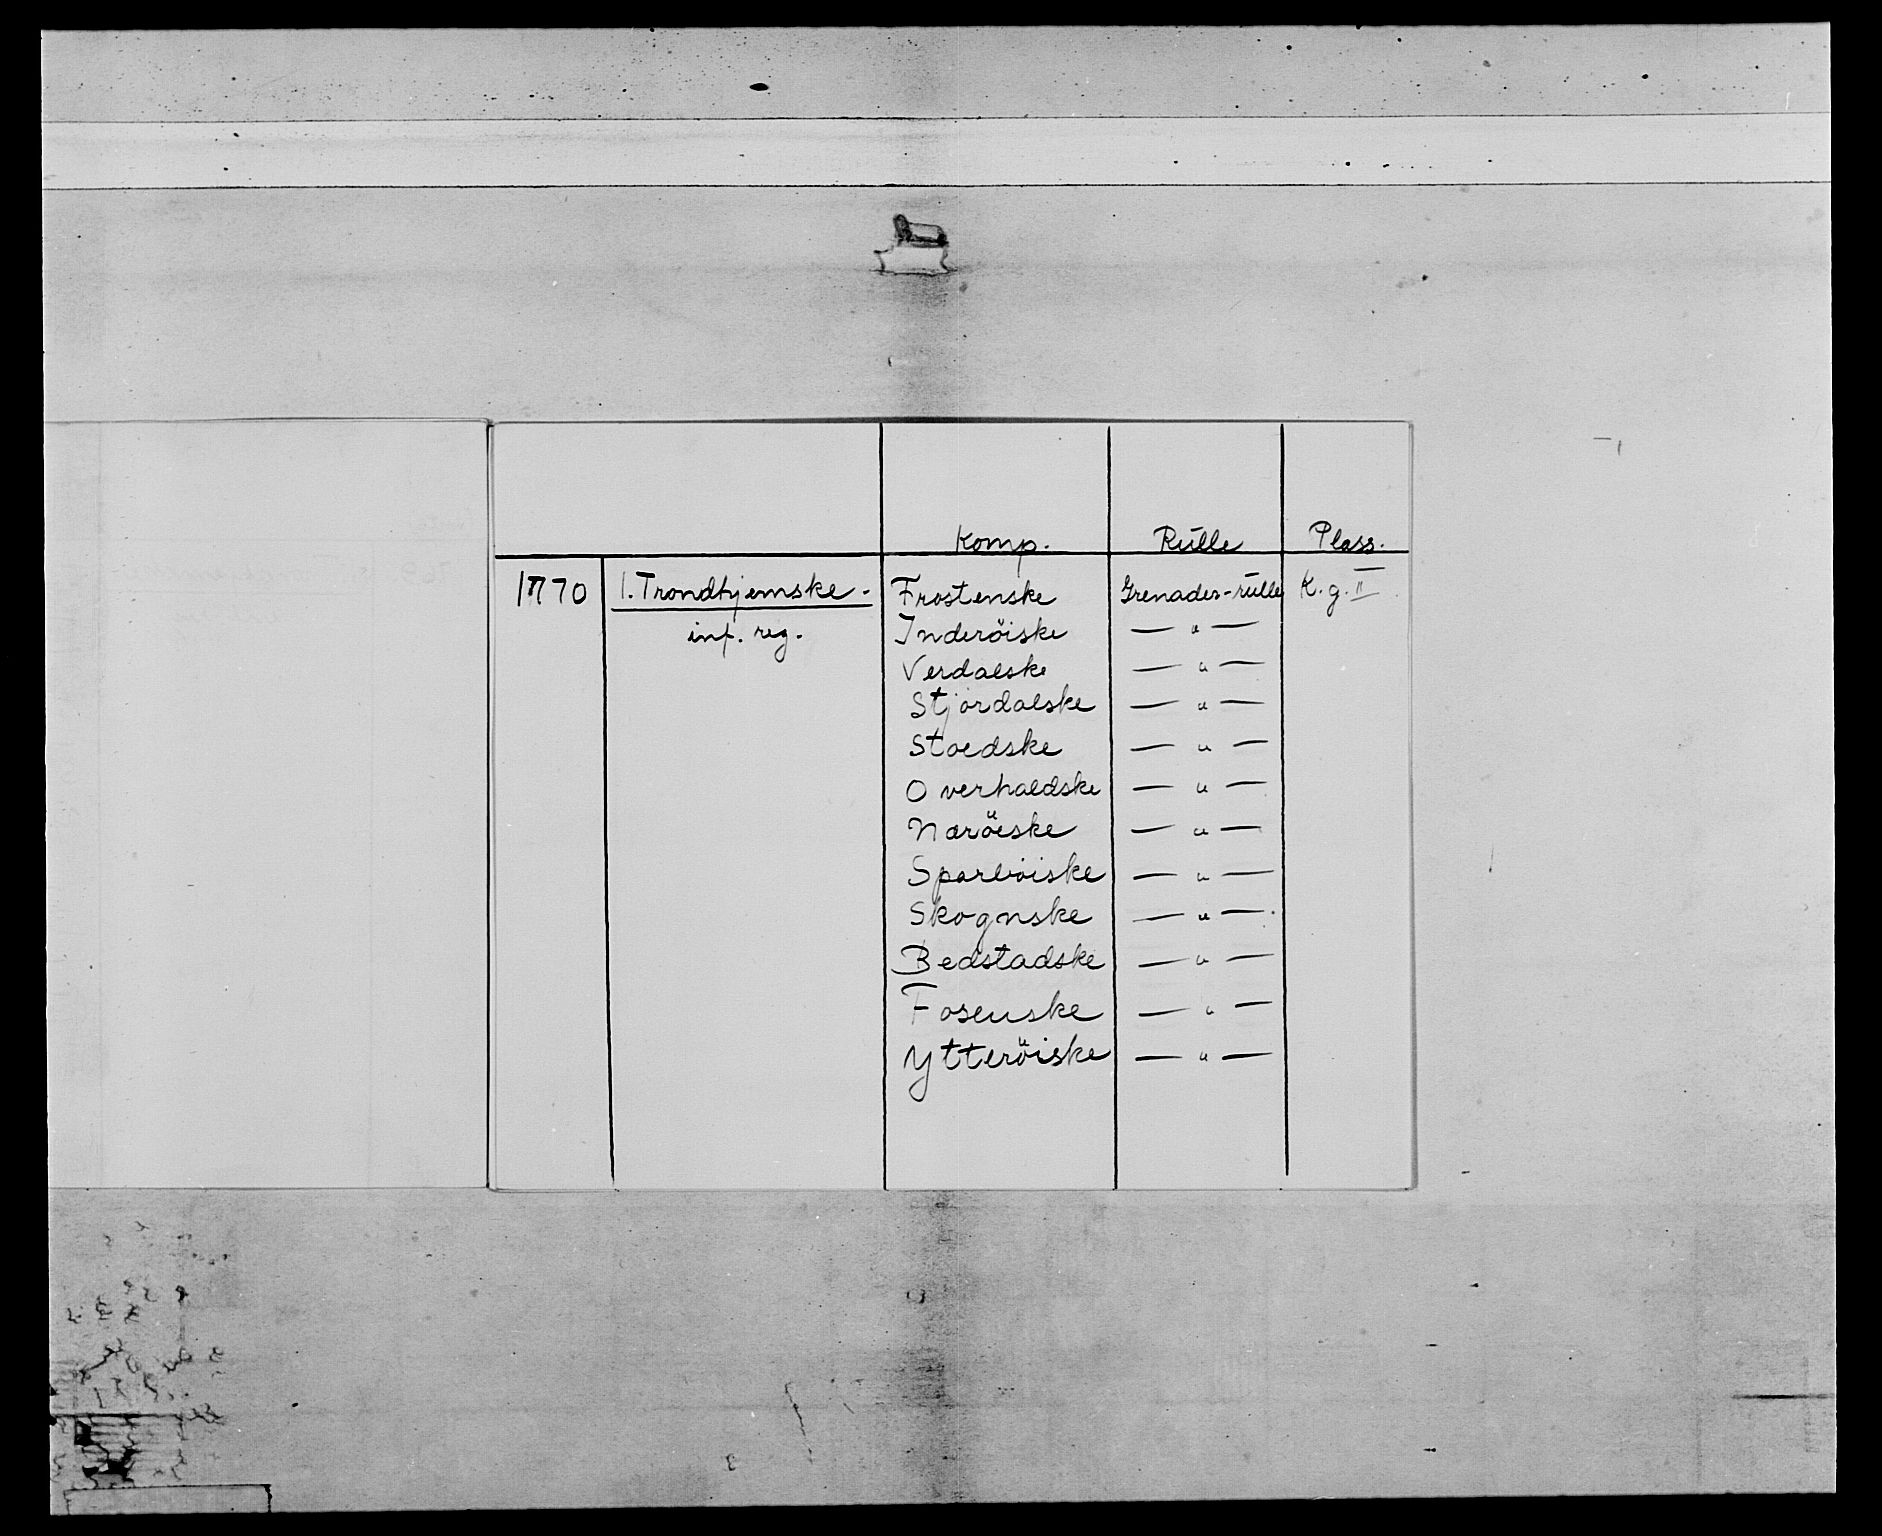 Komp. Rulle Plass.
1770 1. Trondhjemske- Frostenske Grenader-rulle K. g. II
inf. reg. Inderöiske — " —
Verdalske — " —
Stjördalske — " —
Stodske — " —
Overhaldske — " —
Naröiske — " —
Sparböiske — " —
Skognske — " —
Bedstadske — " —
Fosenske — " —
Ytteröiske — " —